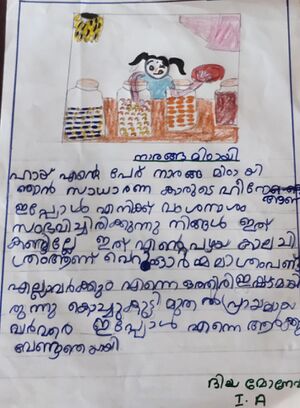 നാരങ്ങ മിഠായി
ഹായ് എൻ്റെ പേര് നാരങ്ങ മിഠായി
ഞാൻ സാധാരണ കാരുടെ
ആണ്
ഇപ്പോൾ എനിക്ക് വംശനാശം
സംഭവിച്ചിരിക്കുന്നു നിങ്ങൾ ഇത്
കണ്ടില്ലേ ഇത് എൻ്റെ പഴയ കാല ചി
ത്രംആണ് വെറും ഓർമ്മ മാത്രം പണ്ട്
എല്ലാവർക്കും എന്നെ ഒത്തിരി ഇഷ്ടമായി
രുന്നു കൊച്ചുകുട്ടി മുതൽ പ്രായമായ
വർവരെ ഇപ്പോൾ എന്നെ ആർക്കും
വേണ്ടാതെയായി
ദിയ
I. A